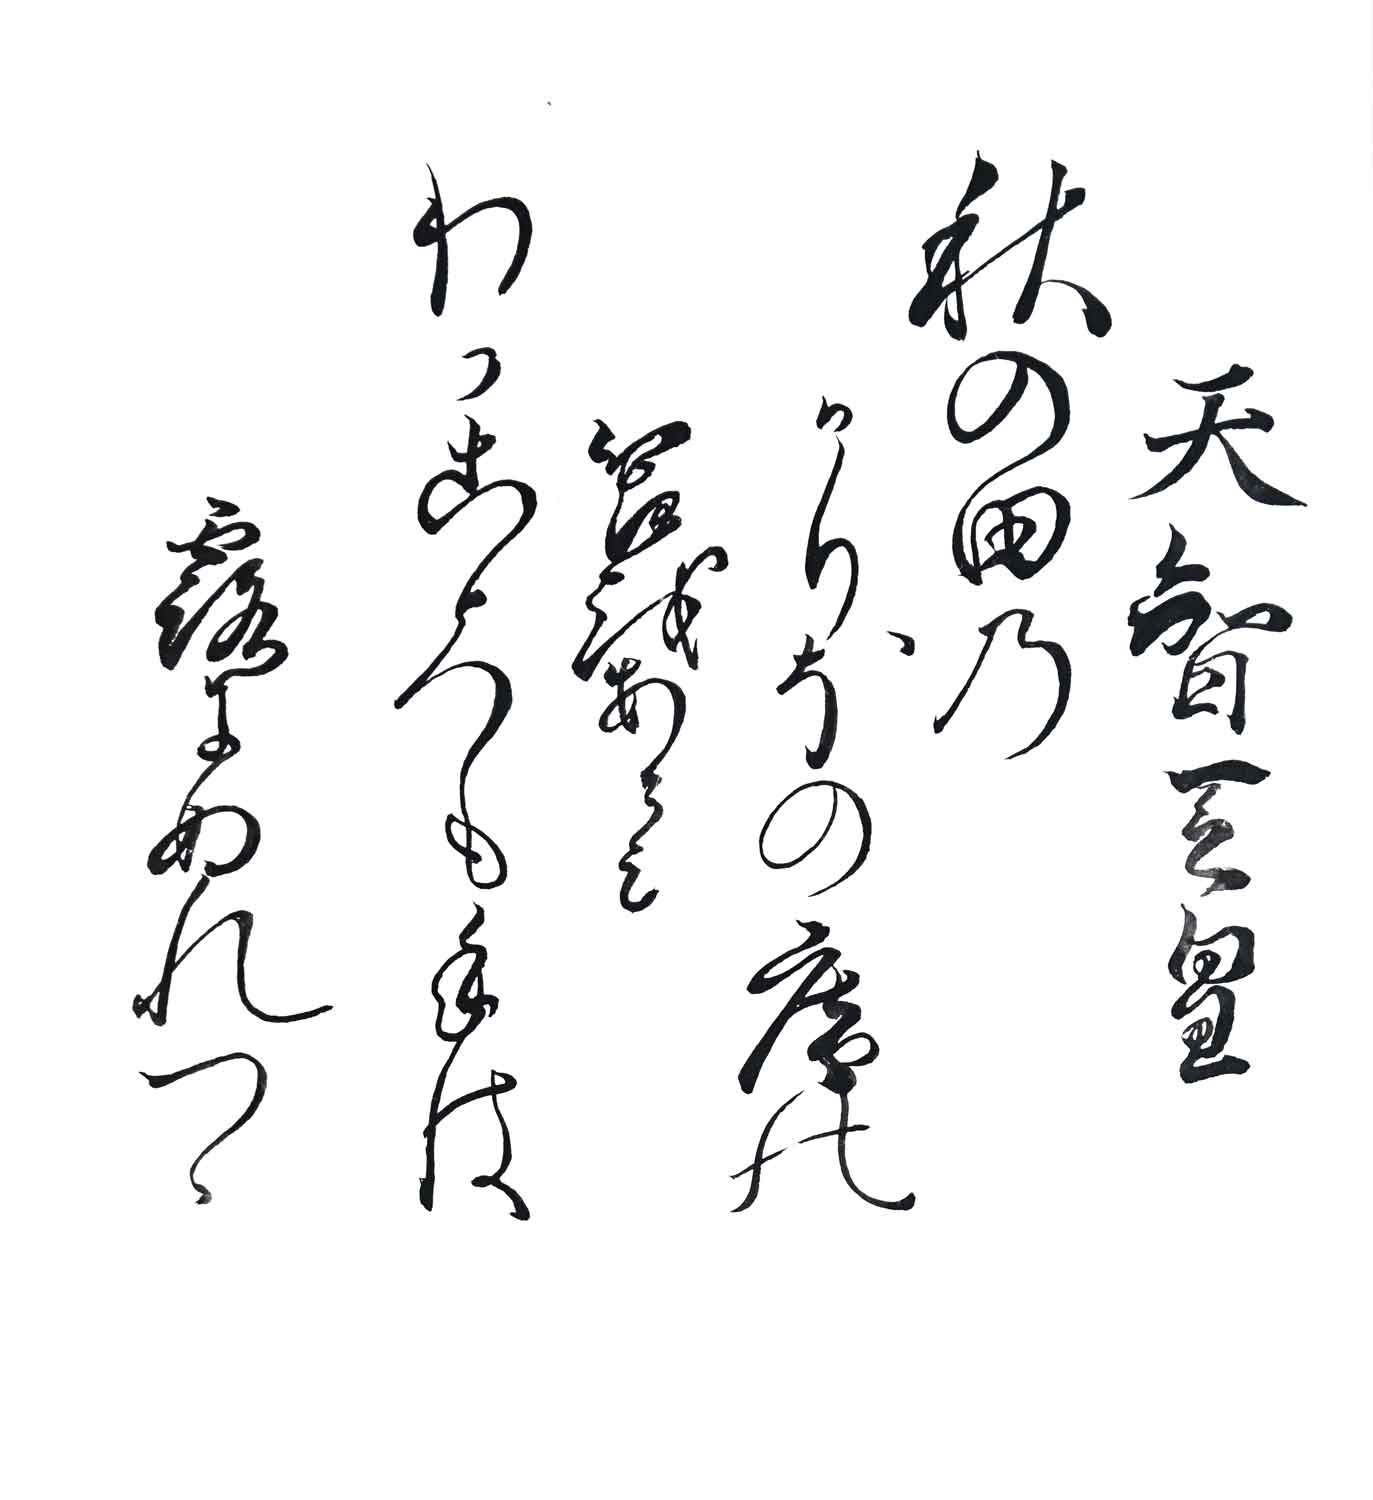 天智天皇
秋の田乃
かりほの庵の
苫をあらみ
わかころも手は
露にぬれつゝ